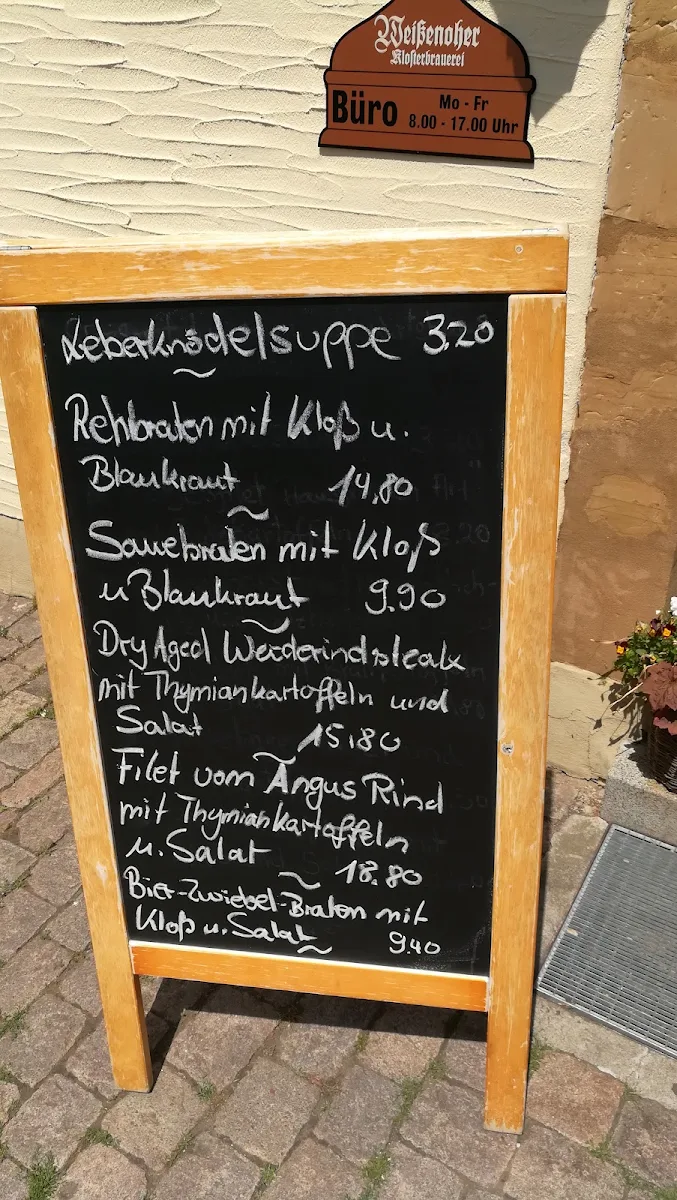 Weißenoher
Klosterbrauerei
Büro
Mo - Fr
8.00 - 17.00 Uhr
Leberknödelsuppe 3.20
~
Rehbraten mit Kloß u.
Blaukraut 14,80
~
Sauebraten mit Kloß
u Blaukraut 9.90
~
Dry Aged Weiderindsteak
mit Thymiankartoffeln und
Salat 15,80
~
Filet vom Angus Rind
mit Thymiankartoffeln
u. Salat 18.80
~
Bier-Zwiebel-Braten mit
Kloß u. Salat 9.40
~